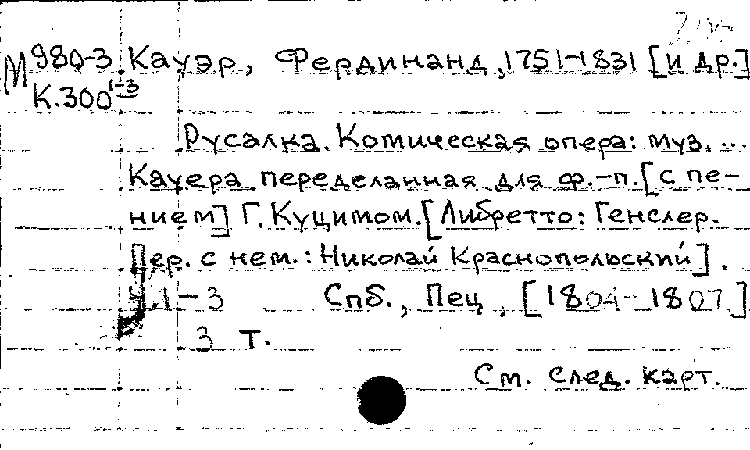 М 980-3 Кауэр, Фердинанд, 1751-1831 [и др.]
К.300 1-3
Русалка. Комическая опера: муз. ...
Кауера переделанная для ф.-п. [с пе-
нием] Г. Куцимом. [Либретто: Генслер.
Пер. с нем.: Николай Краснопольский].
Ч.1-3 Спб., Пец, [1804-1807]
3 т.
См. след. карт.